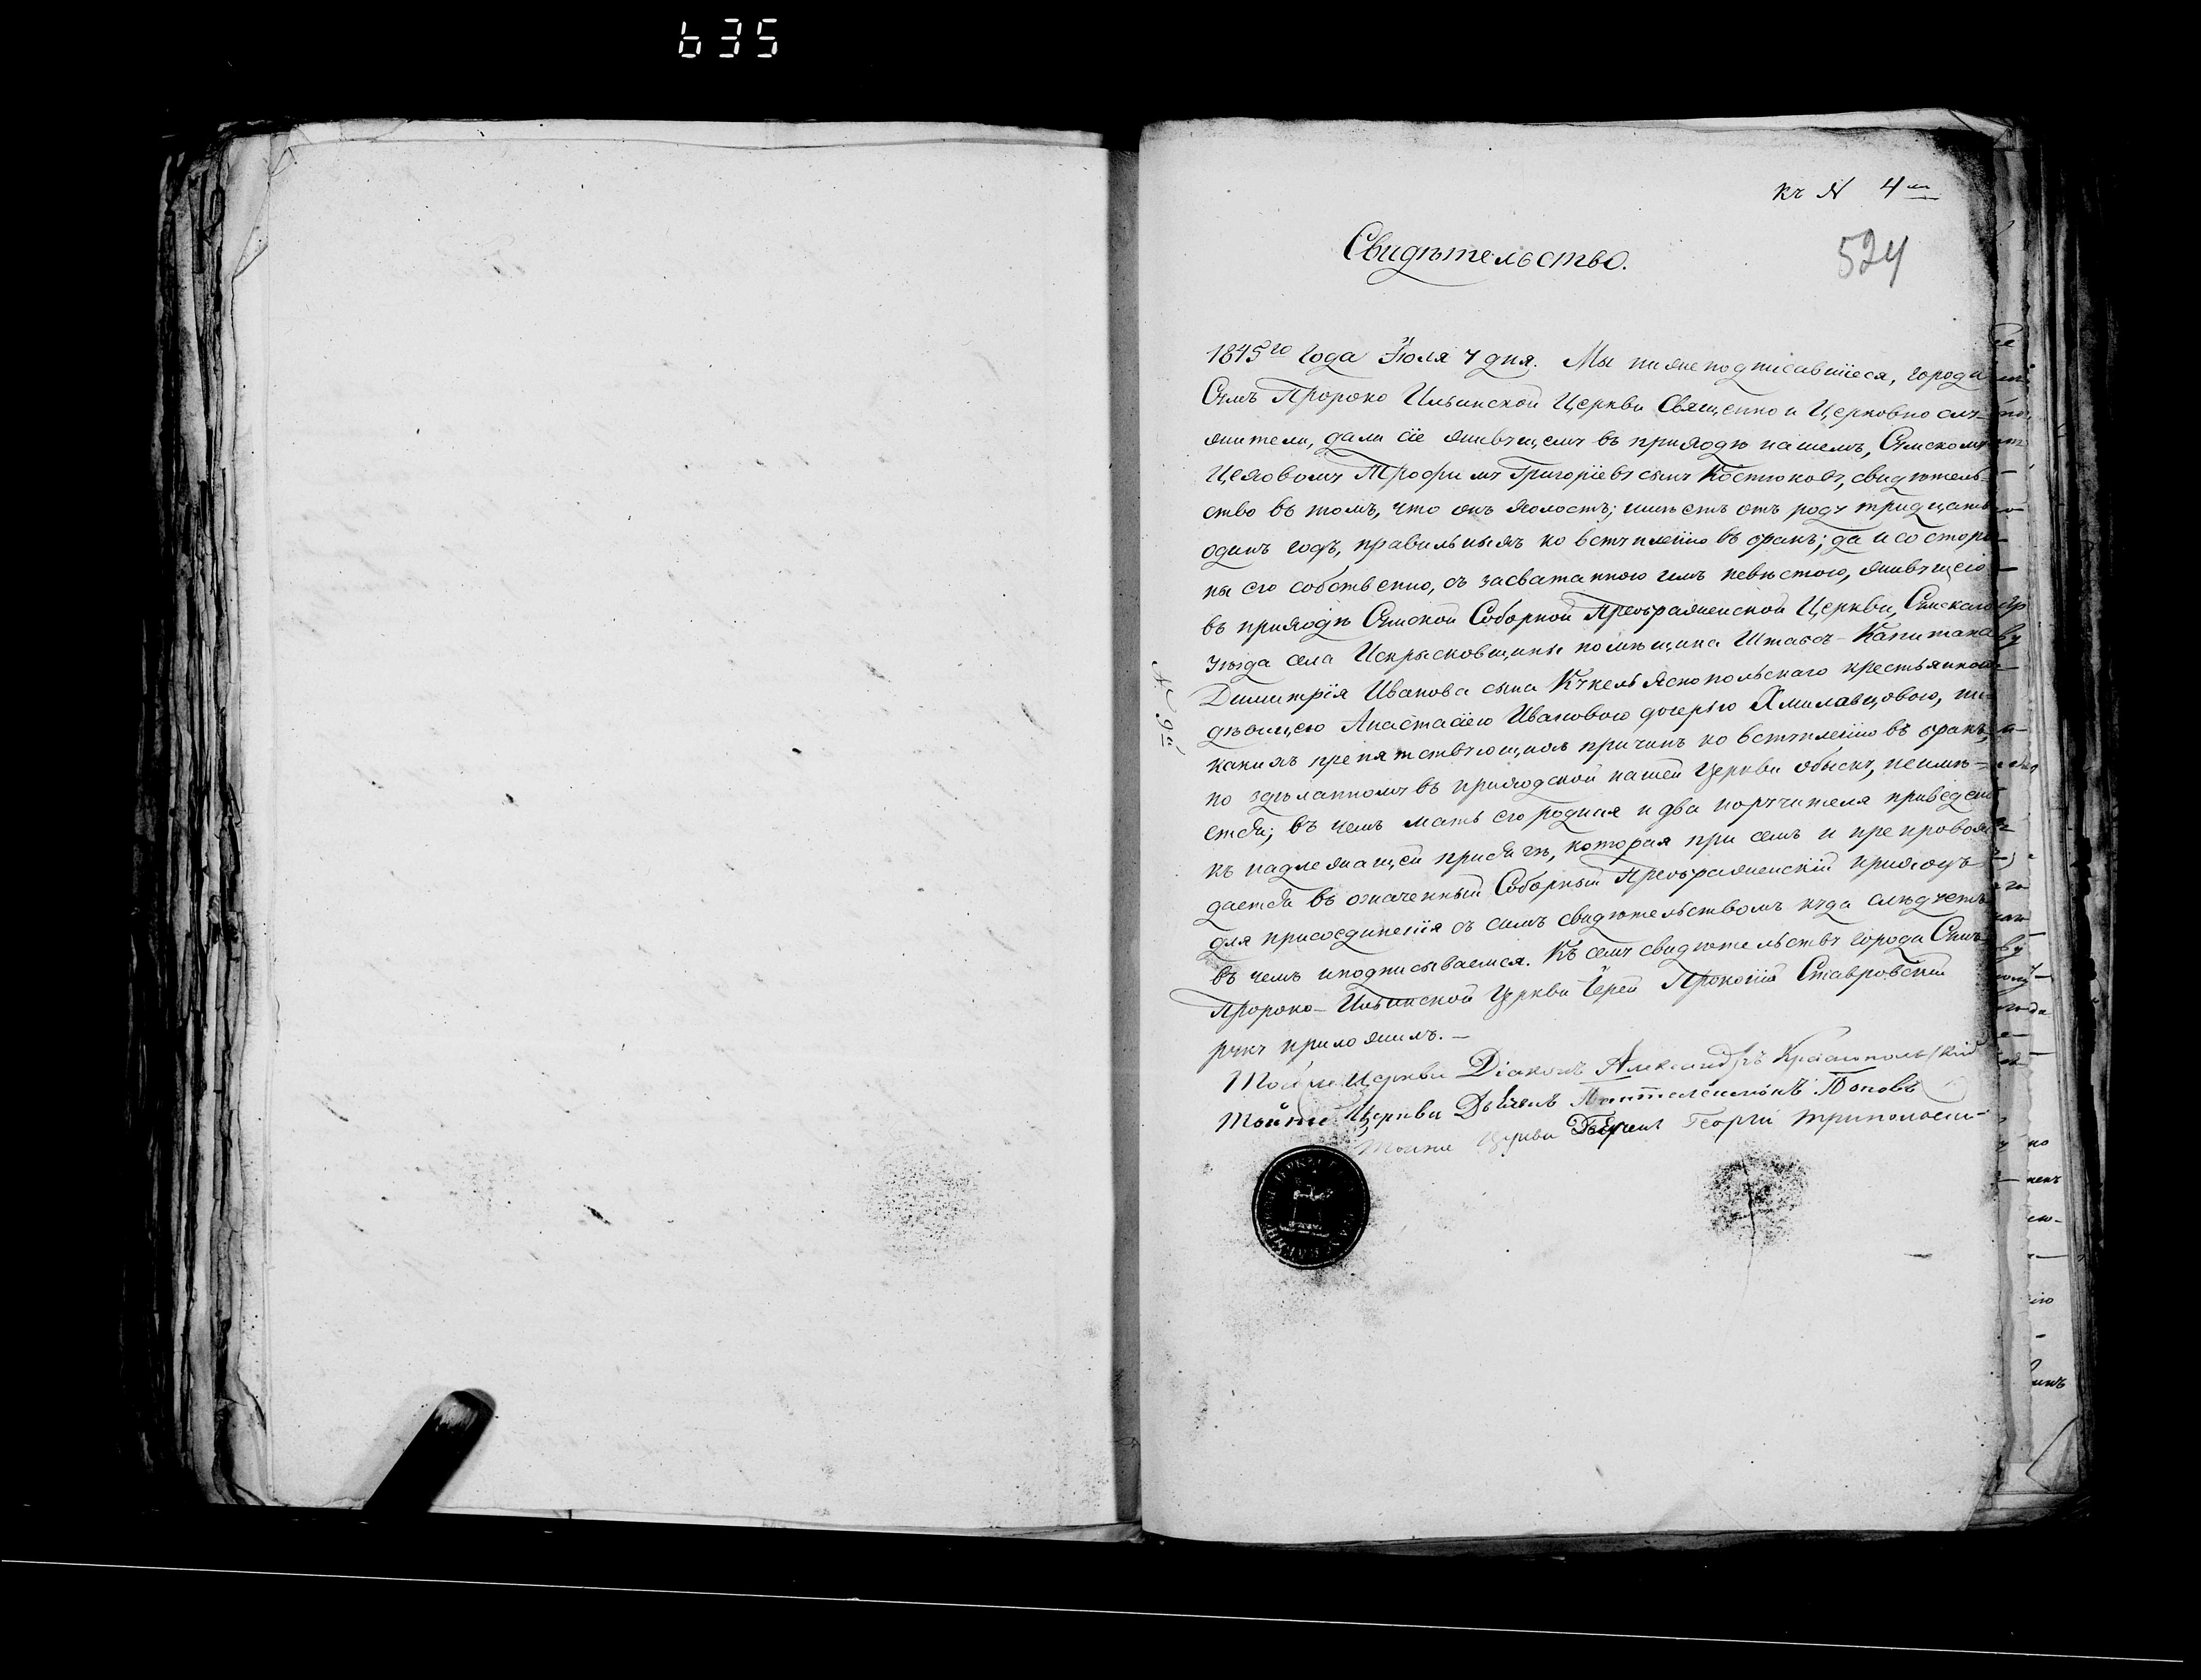 635
къ № 4му
524
Свидѣтельство.
1845го года Іюля 4 дня. Мы нижеподписавшіеся, города
Сумъ Пророко Ильинской Церкви Священно и Церковно слу-
жители, дали сіе живущему въ приходѣ нашемъ, Сумскому
Цеховому Трофиму Григоріеву сыну Костюкову, свидѣтель-
ство въ томъ, что онъ холостъ; имѣетъ отъ роду тридцать
одинъ годъ, правильныхъ ко вступленію въ бракъ; да и со сторо-
ны его собственно, съ засватанною имъ невѣстою, живущею
въ приходѣ Сумской Соборной Преображенской Церкви, Сумскаго
уѣзда села Искрысковщины помѣщика Штабсъ-Капитана
Димитрія Иванова сына Кукель Яснопольскаго крестьянкою
дѣвицею Анастасіею Ивановою дочерью Хмилавцовою, ни-
какихъ препятствующихъ причинъ ко вступленію въ бракъ,
по здѣланному въ приходской нашей Церкви обыску, неимѣ-
етси; въ чемъ мать его родная и два поручителя приведены
къ надлежащей присягѣ, которая при семъ и препровож-
даетси въ означенный Соборный Преображенскій приходъ
для присоединенія съ симъ свидѣтельствомъ куда слѣдуетъ
въ чемъ иподписываемся. Къ сему свидѣтельству города Сумъ
Пророко-Ильинской Церкви Іерей Прокопій Ставровскій
руку приложилъ.—
Той же Церкви Діаконъ Александръ Краснопольскій
Тойже Церкви Дьячокъ Пантелеимонъ Поповъ
Тойже Церкви Георгій
№ 9й